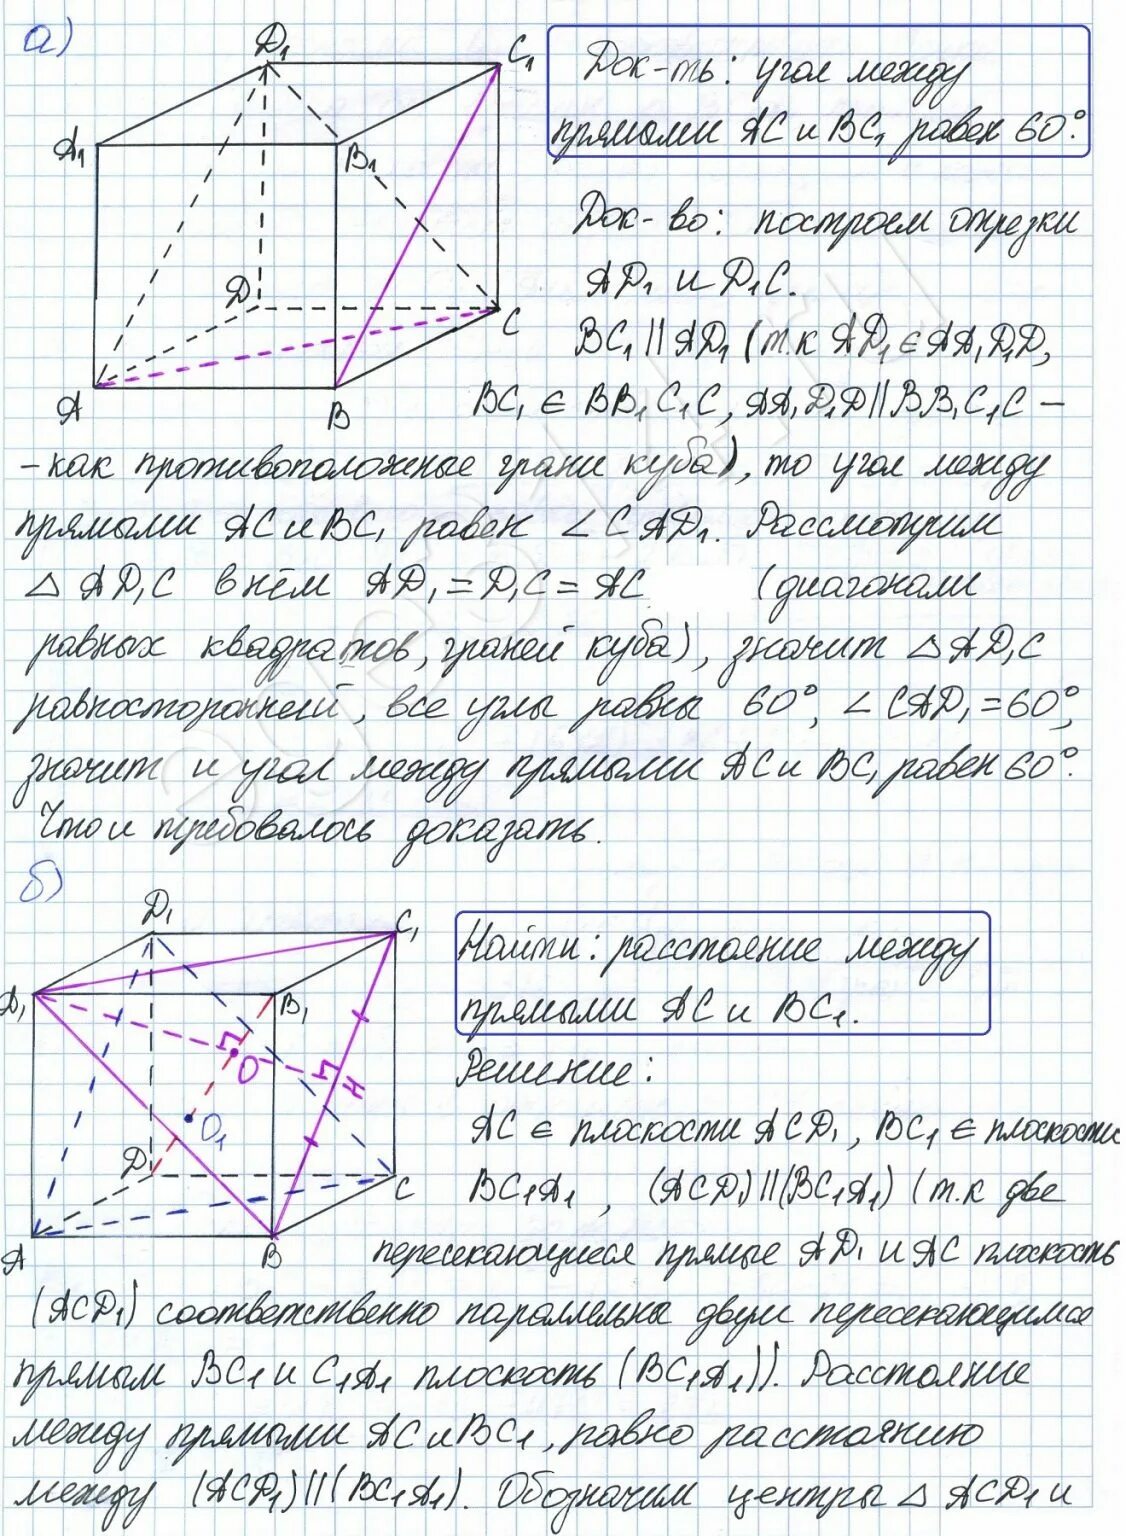 а)
Док-ть: угол между
прямыми AC и BC₁ равен 60°.
D₁
C₁
A₁
B₁
D
C
A
B
Док-во: построем отрезки
AD₁ и D₁C.
BC₁ || AD₁ (т.к AD₁ ∈ AA₁D₁D,
BC₁ ∈ BB₁C₁C, AA₁D₁D || BB₁C₁C –
– как противоположные грани куба), то угол между
прямыми AC и BC₁ равен ∠CAD₁. Рассмотрим
△ AD₁C в нём AD₁ = D₁C = AC (диагонали
равных квадратов, граней куба), значит △ AD₁C
равносторонней, все углы равны 60°, ∠CAD₁ = 60°,
значит и угол между прямыми AC и BC₁ равен 60°.
Что и требовалось доказать.
б)
Найти: расстояние между
прямыми AC и BC₁.
D₁
C₁
A₁
B₁
O
H
O₁
D
C
A
B
Решение:
AC ∈ плоскости ACD₁, BC₁ ∈ плоскости
BC₁A₁, (ACD₁) || (BC₁A₁) (т.к две
пересекающиеся прямые AD₁ и AC плоскость
(ACD₁) соответственно параллельна двум пересекающимся
прямым BC₁ и C₁A₁ плоскость (BC₁A₁)). Расстояние
между прямыми AC и BC₁, равно расстоянию
между (ACD₁) || (BC₁A₁). Обозначим центры △ ACD₁ и